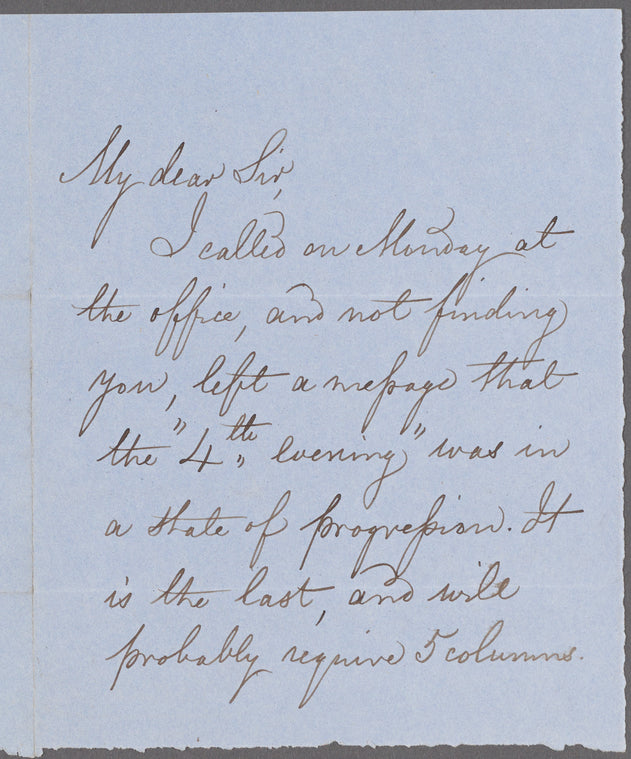 My dear Sir,
I called on Monday at
the office, and not finding
you, left a meſsage that
the "4th evening" was in
a state of progreſsion. It
is the last, and will
probably require 5 columns.